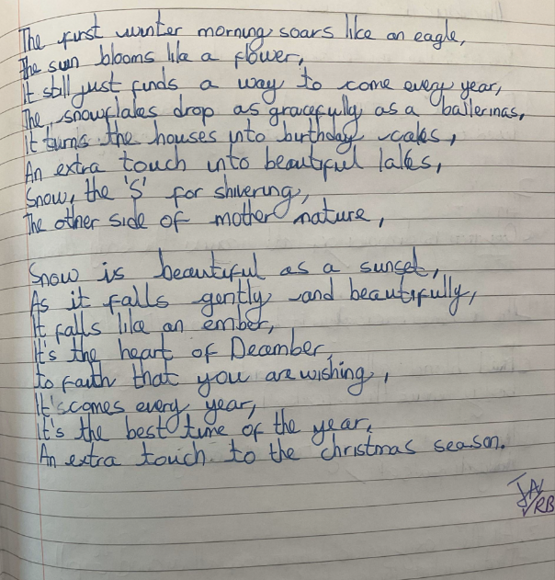 The first winter morning soars like an eagle,
The sun blooms like a flower,
It still just finds a way to come every year,
The snowflakes drop as gracefully as a ballerinas,
It turns the houses into birthday cakes,
An extra touch into beautiful lakes,
Snow, the 'S' for shivering,
The other side of mother nature,
Snow is beautiful as a sunset,
As it falls gently and beautifully,
It falls like an ember,
It's the heart of December,
to faith that you are wishing,
It's comes every year,
It's the best time of the year,
An extra touch to the christmas season.
RB